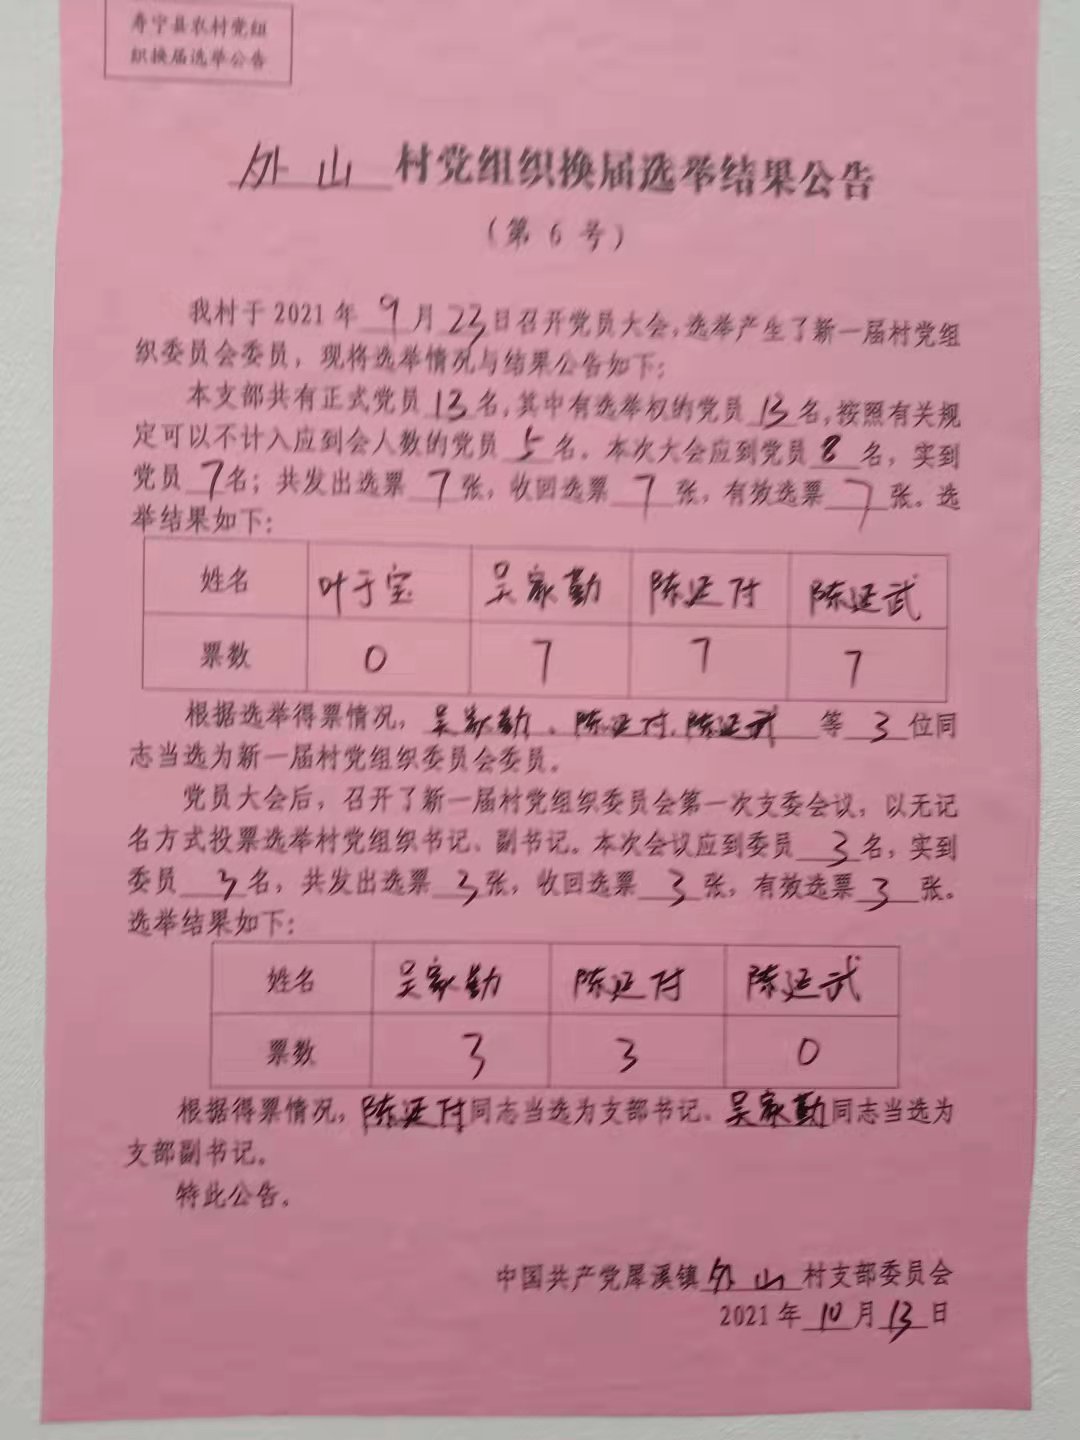 寿宁县农村党组
织换届选举公告
外山村党组织换届选举结果公告
（第 6 号）
我村于 2021 年 9 月 23 日召开党员大会，选举产生了新一届村党组
织委员会委员，现将选举情况与结果公告如下：
本支部共有正式党员 13 名，其中有选举权的党员 13 名，按照有关规
定可以不计入应到会人数的党员 5 名。本次大会应到党员 8 名，实到
党员 7 名；共发出选票 7 张，收回选票 7 张，有效选票 7 张。选
举结果如下：
姓名 叶于宝 吴家勤 陈延付 陈延武
票数 0 7 7 7
根据选举得票情况，吴家勤、陈延付、陈延武 等 3 位同
志当选为新一届村党组织委员会委员。
党员大会后，召开了新一届村党组织委员会第一次支委会议，以无记
名方式投票选举村党组织书记、副书记。本次会议应到委员 3 名，实到
委员 3 名，共发出选票 3 张，收回选票 3 张，有效选票 3 张。
选举结果如下：
姓名 吴家勤 陈延付 陈延武
票数 3 3 0
根据得票情况，陈延付同志当选为支部书记、吴家勤同志当选为
支部副书记。
特此公告。
中国共产党犀溪镇外山村支部委员会
2021 年 10 月 13 日